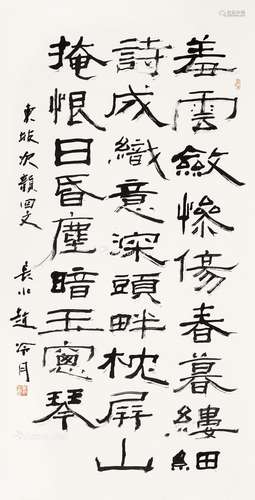 羞雲斂慘傷春暮縷細
詩成織意深頭畔枕屏山
掩恨日昏塵暗玉窻琴
東坡次韻回文 長水趙冷月